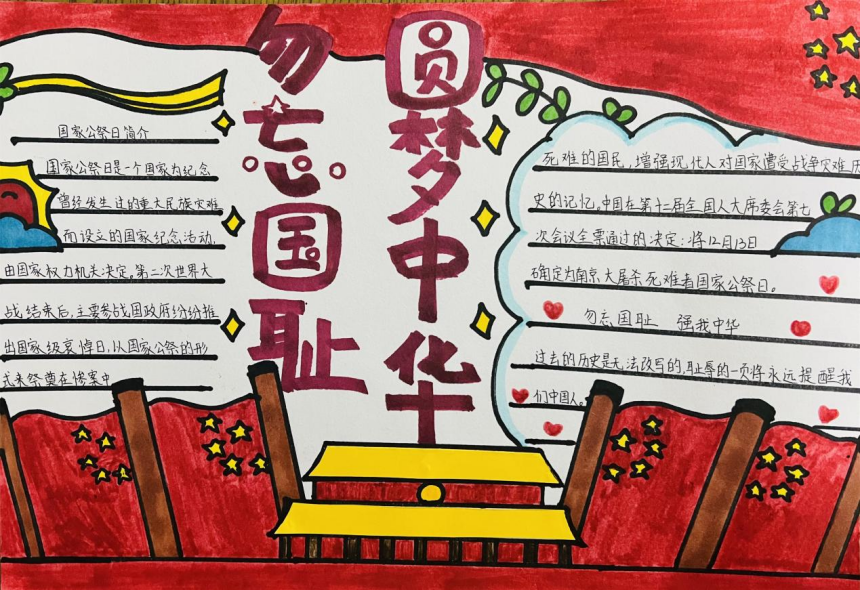 勿忘国耻
圆梦中华
国家公祭日简介
国家公祭日是一个国家为纪念
曾经发生过的重大民族灾难
而设立的国家纪念活动,
由国家权力机关决定。第二次世界大
战结束后,主要参战国政府纷纷推
出国家级哀悼日,从国家公祭的形
式来祭奠在惨案中
死难的国民,增强现代人对国家遭受战争灾难历
史的记忆。中国在第十二届全国人大席委会第七
次会议全票通过的决定:将12月13日
确定为南京大屠杀死难者国家公祭日。
勿忘国耻 强我中华
过去的历史是无法改写的,耻辱的一页将永远提醒我
们中国人。